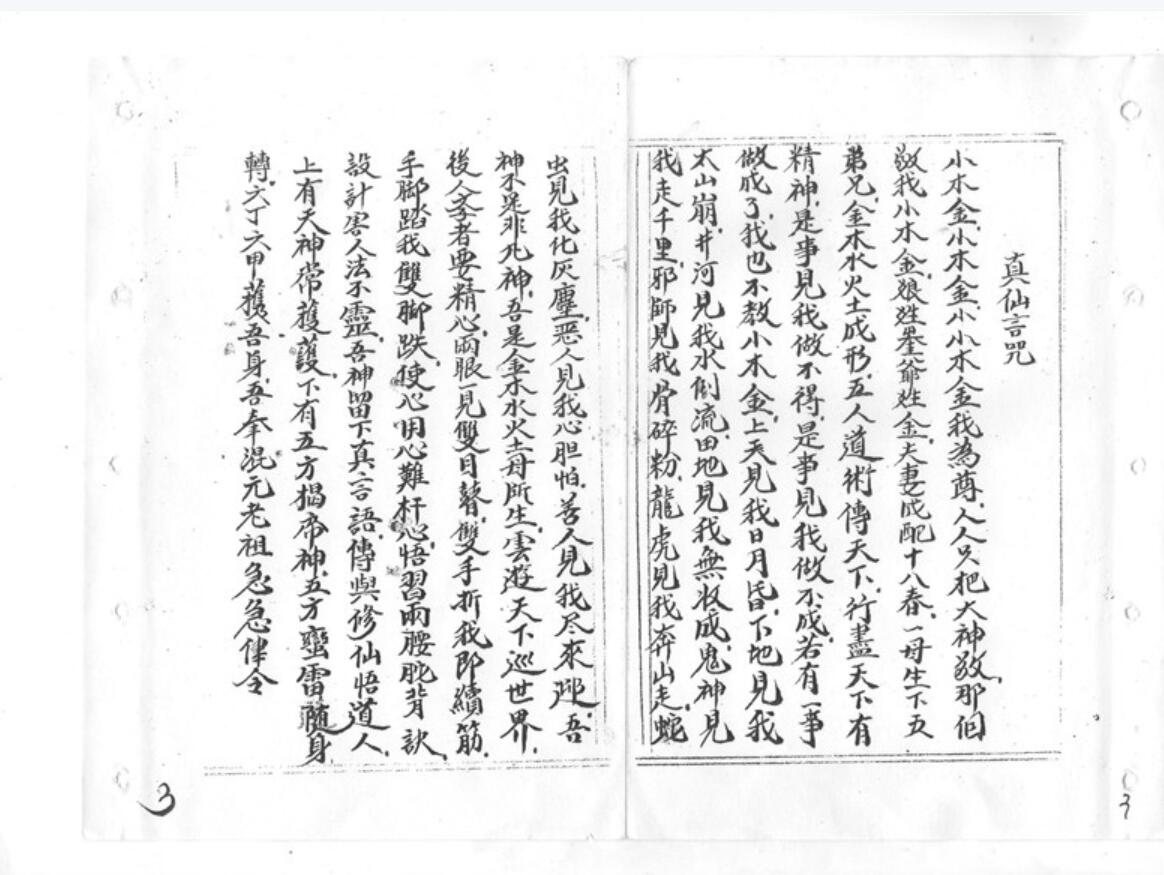 真仙言咒
小木金.小木金小小木金我為尊.人人只把大神敬那個
敬我小木金.娘姓姜爺姓金.夫妻成配十八春.一母生下五
弟兄.金木水火土成形.五人道術傳天下.行盡天下有
精神.是事見我做不得.是事見我做不成.若有一事
做成了.我也不教小木金.上天見我日月昏.下地見我
太山崩.井河見我水倒流.田地見我無收成.鬼神見
我走千里.邪師見我骨碎粉.龍虎見我奔山走.蛇
虫見我化灰塵.惡人見我心胆怕.善人見我尽來迎.吾
神不是非凡神.吾是金木水火土母所生.雲遊天下巡世界.
後人學者要精心.兩眼一見雙目瞽.雙手折我即續筋.
手脚踏我雙脚跌.使心用心難杆心.悟習兩腰駝背訣.
設計害人法不靈.吾神留下真言語.傳與修仙悟道人.
上有天神常獲護.下有五方揭帝神.五方蠻雷隨身
轉.六丁六甲獲吾身.吾奉混元老祖急急律令
3
3